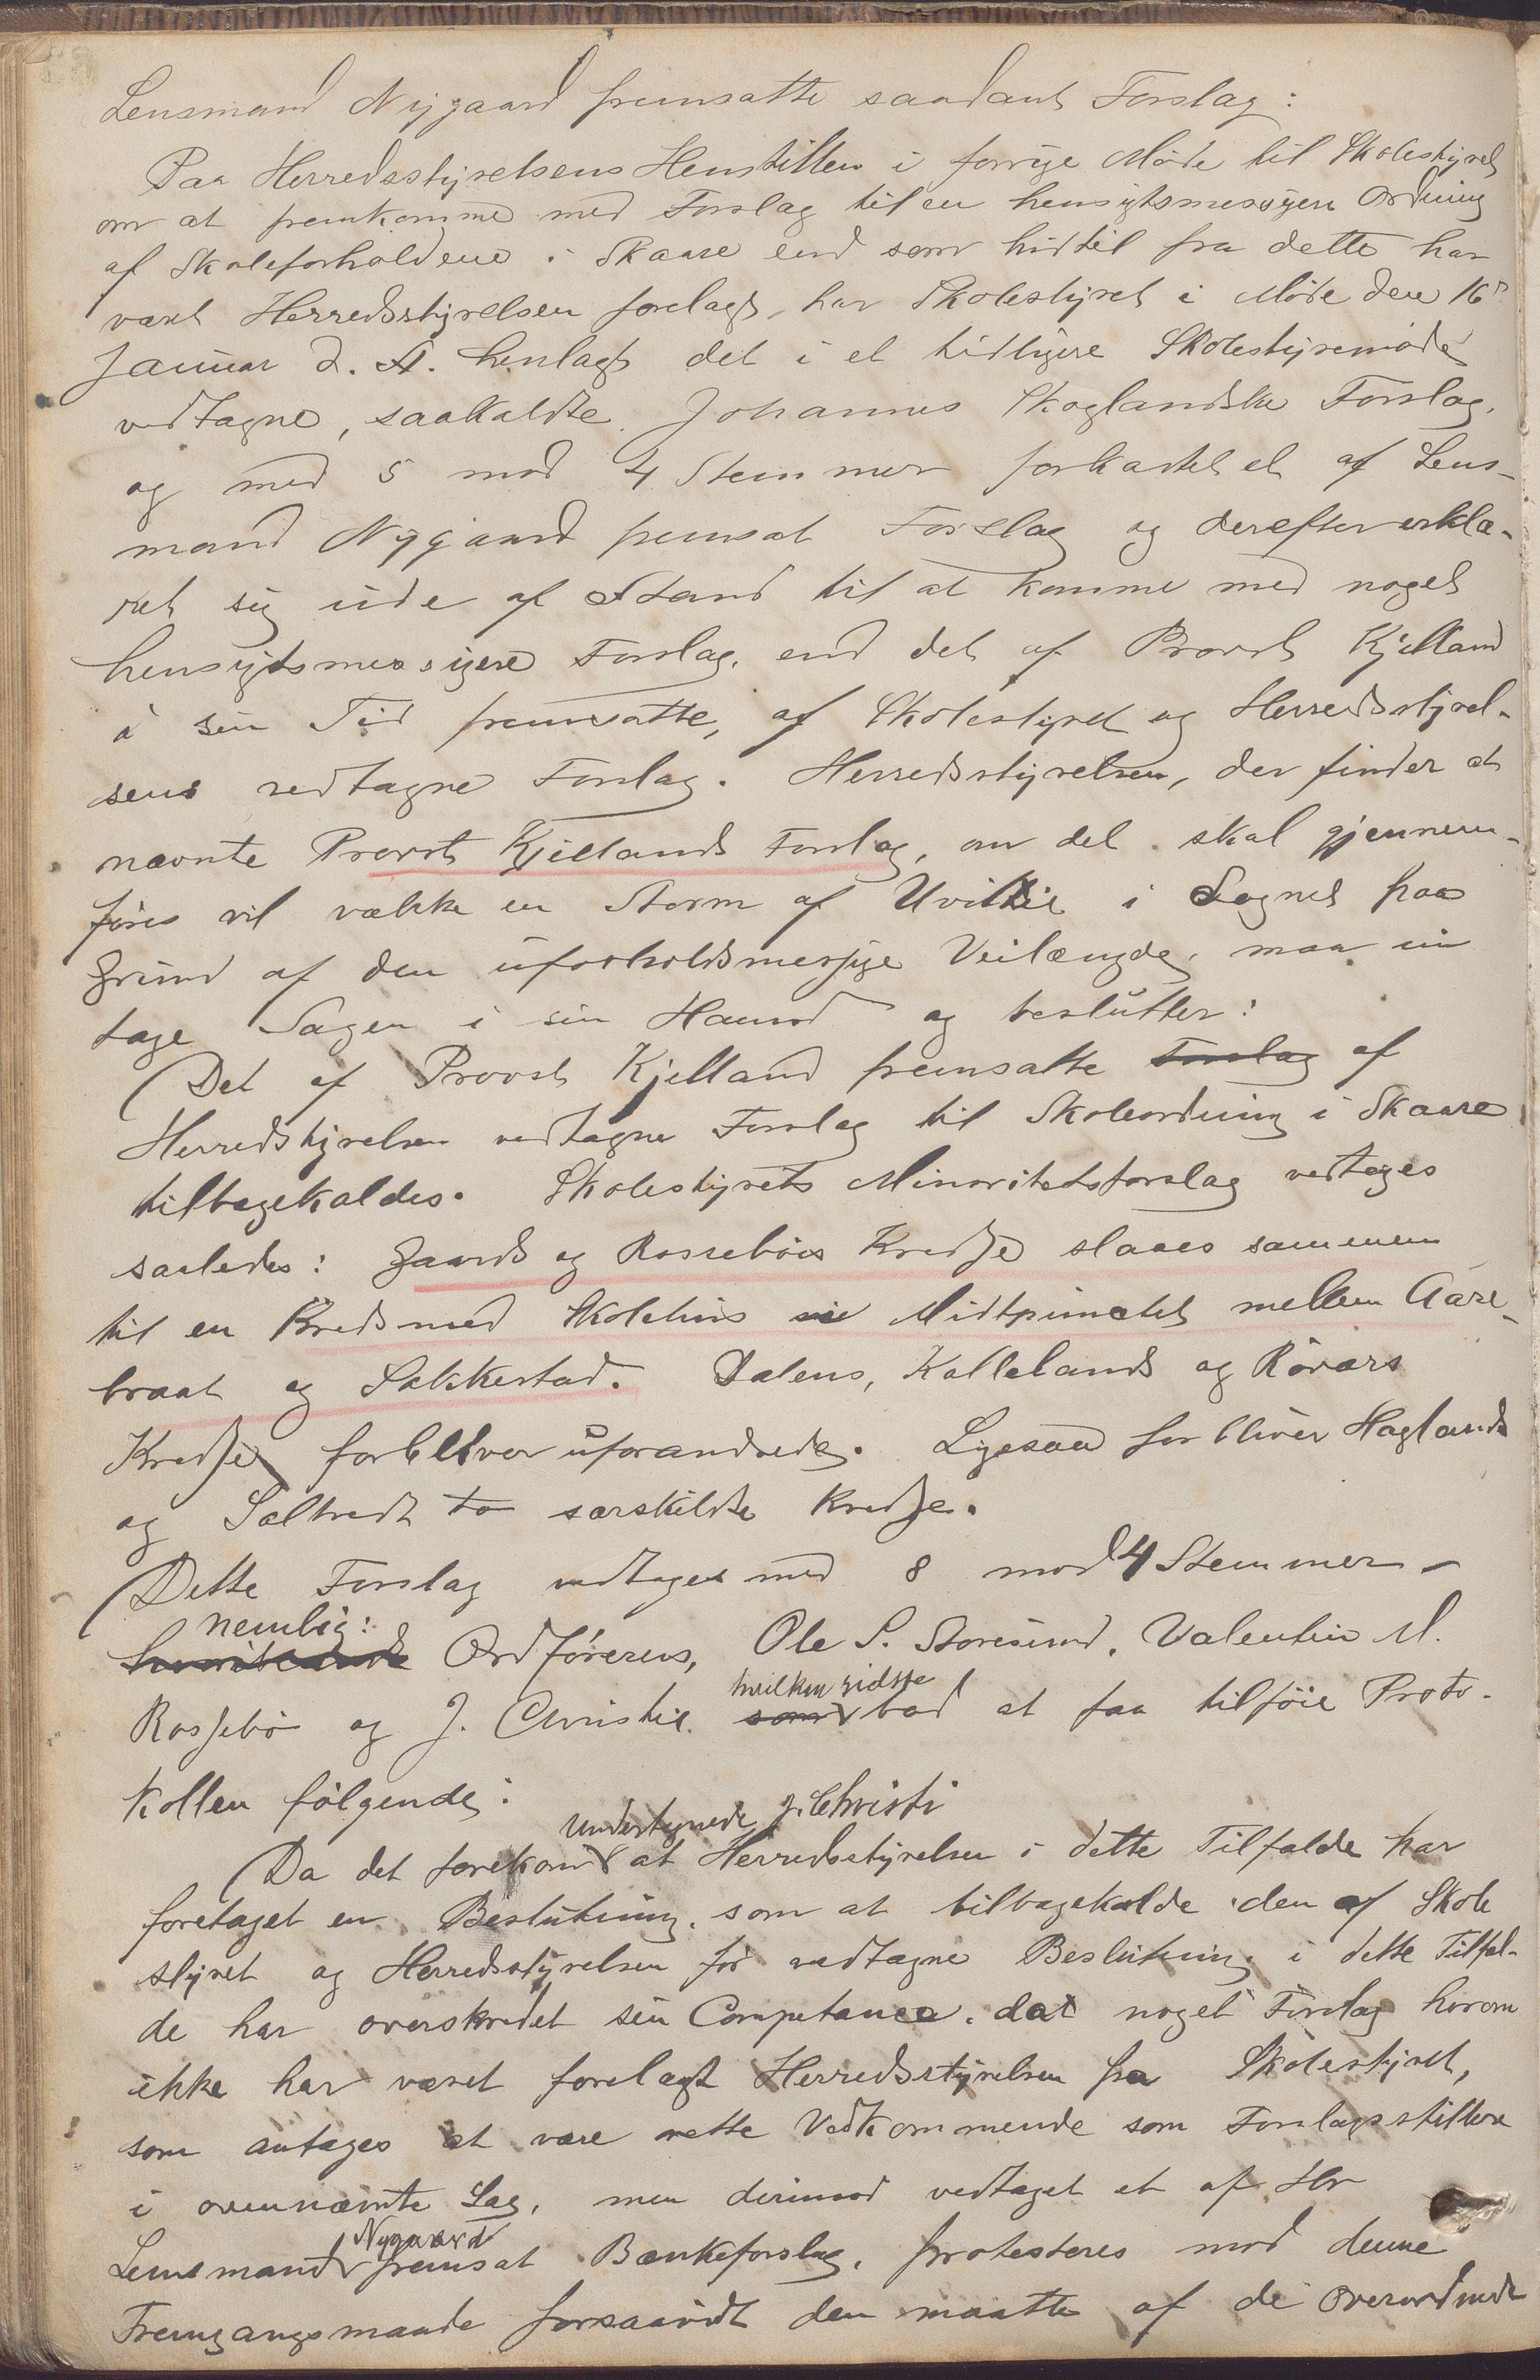 Lensmand Nygaard fremsatte saadant Forslag:
Paa Herredsstyrelsens Henstillen i forrige Møde til Skolestyret
om at fremkomme med Forslag til en hensigtsmessigere Ordning
af Skoleforholdene i Skaare end som hidtil fra dette har
været Herredsstyrelsen forelagt, har Skolestyret i Møde den 16de
Januar d. A. henlagt det i et tidligere Skolestyremøde
vedtagne, saakaldte Johannes Skoglandske Forslag,
og med 5 mod 4 Stemmer forkastet et af Lens-
mand Nygaard fremsat Forslag og derefter erklæ-
ret sig ude af Stand til at komme med noget
hensigtsmessigere Forslag, end det af Provst Kjelland
i sin Tid fremsatte, af Skolestyret og Herredsstyrel-
sens vedtagne Forslag. Herredsstyrelsen, der finder at
nævnte Provst Kjellands Forslag, om det skal gjennem-
føres vil vække en Storm af Uvillie i Sognet paa
Grund af den uforholdsmessige Veilængde, maa nu
tage Sagen i sin Haand og beslutter:
Det af Provst Kjelland fremsatte Forslag af
Herredstyrelsen vedtagne Forslag til Skoleordning i Skaare
tilbagekaldes. Skolestyrets Minoritetsforslag vedtages
saaledes: Gaards og Rossebøes Kredse slaaes sammen
til en Kreds med Skolehus i Midtpunctet mellem Aare-
braat og Sakkestad. Dalens, Kallelands og Røværs
Kredse forbliver uforandrede. Ligesaa forbliver Haglands
og Saltvedt to særskildte Kredse.
Dette Forslag vedtages med 8 mod 4 Stemmer -
nemlig:
Ordførerens, Ole S. Storesund, Valentin M.
hvilken sidste
Rossebø og J. Christie som bad at faa tilføie Proto-
kollen følgende:
Undertegnede J. Christi
Da det forekom at Herredsstyrelsen i dette Tilfælde har
foretaget en Beslutning, som at tilbagekalde den af Skole
styret og Herredsstyrelsen før vedtagne Beslutning i dette Tilfæl-
de har overskredet sin Competance. da noget Forslag herom
ikke har været forelagt Herredsstyrelsen fra Skolestyret,
som antages at være rette Vedkommende som Forslagsstillere
i ovennævnte Sag, men derimod vedtaget et af Hr
Nygaard
Lensmand fremsat Bænkeforslag, protesteres mod denne
Fremgangsmaade forsaavidt den maatte af de overordnede